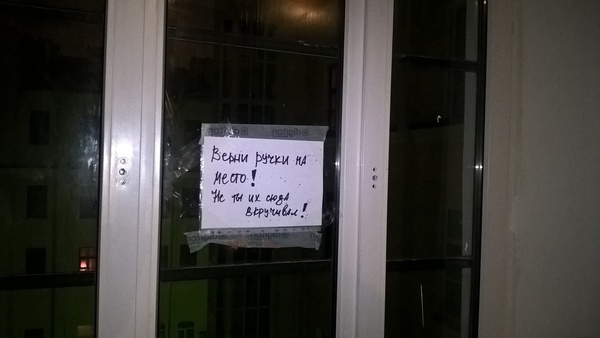 Верни ручки на
место!
Не ты их сюда
вкручивал!